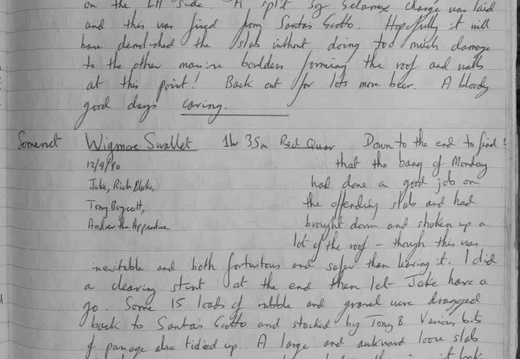 on the LH side. A split 3kg Selamex charge was laid
and this was fired from Santa's Grotto. Hopefully it will
have demolished the slab without doing too much damage
to the other massive boulders forming the roof and walls
at this point! Back out for lots more beer. A bloody
good days caving.
Somerset Wigmore Swallet 1hr 35m Red Quar Down to the end to find
12/9/90 that the bang of Monday
Jake, Rich Blake, had done a good job on
Tony Boycott, the offending slab and had
Andrew the Apprentice brought down and shaken up a
lot of the roof - though this was
inevitable and both fortuitous and safer than leaving it. I did
a clearing stint at the end then let Jake have a
go. Some 15 loads of rubble and gravel were dragged
back to Santa's Grotto and stacked by Tony B. Various bits
of passage also tidied up. A large and awkward loose slab